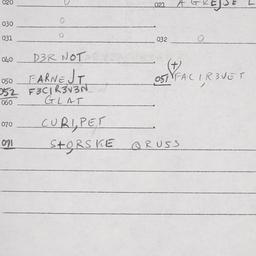 020 0 021 AGREJSE L
030 0
031 0 032 0
040 D3R NOT
050 FARNEJT 051 (+) FACIR3VET
052 F3CIR3V3N
060 GLAT
070 CURI,PET
071 STQRSKE QRUSS